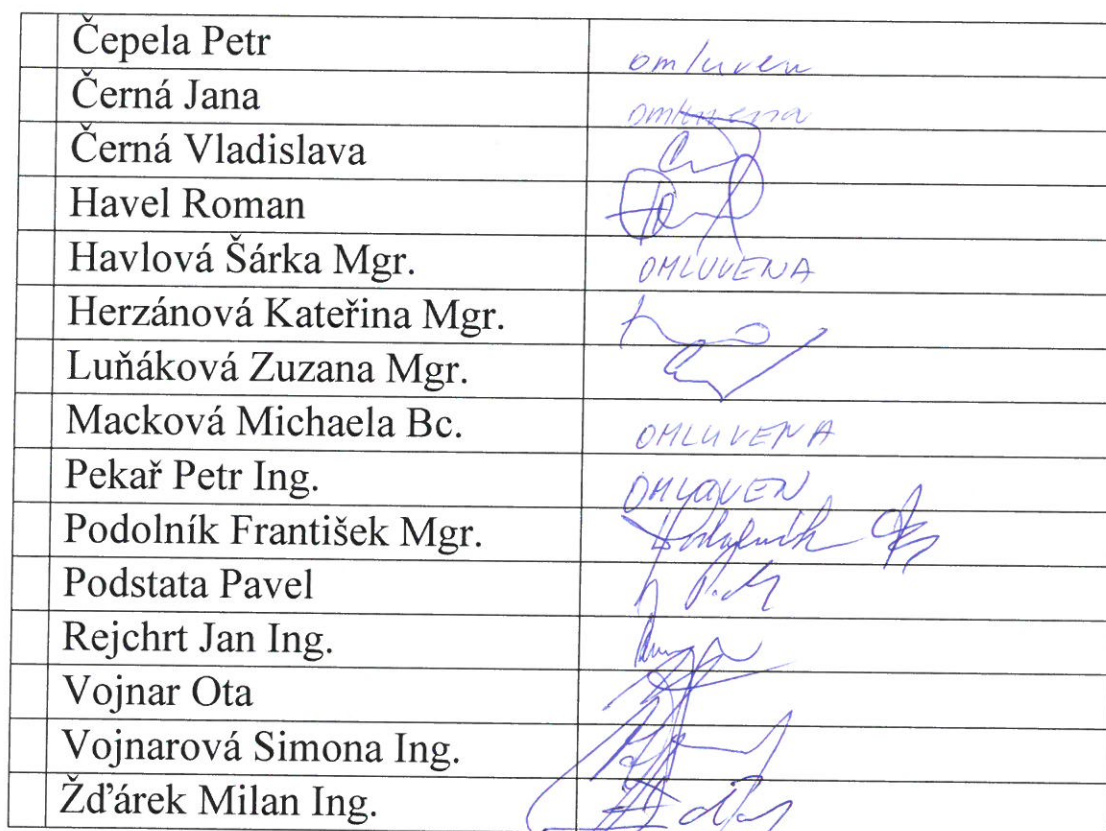 Čepela Petr omluven
Černá Jana omluvena
Černá Vladislava
Havel Roman
Havlová Šárka Mgr. OMLUVENA
Herzánová Kateřina Mgr.
Luňáková Zuzana Mgr.
Macková Michaela Bc. OMLUVENA
Pekař Petr Ing. OMLUVEN
Podolník František Mgr. Podolník
Podstata Pavel
Rejchrt Jan Ing.
Vojnar Ota
Vojnarová Simona Ing.
Žďárek Milan Ing.